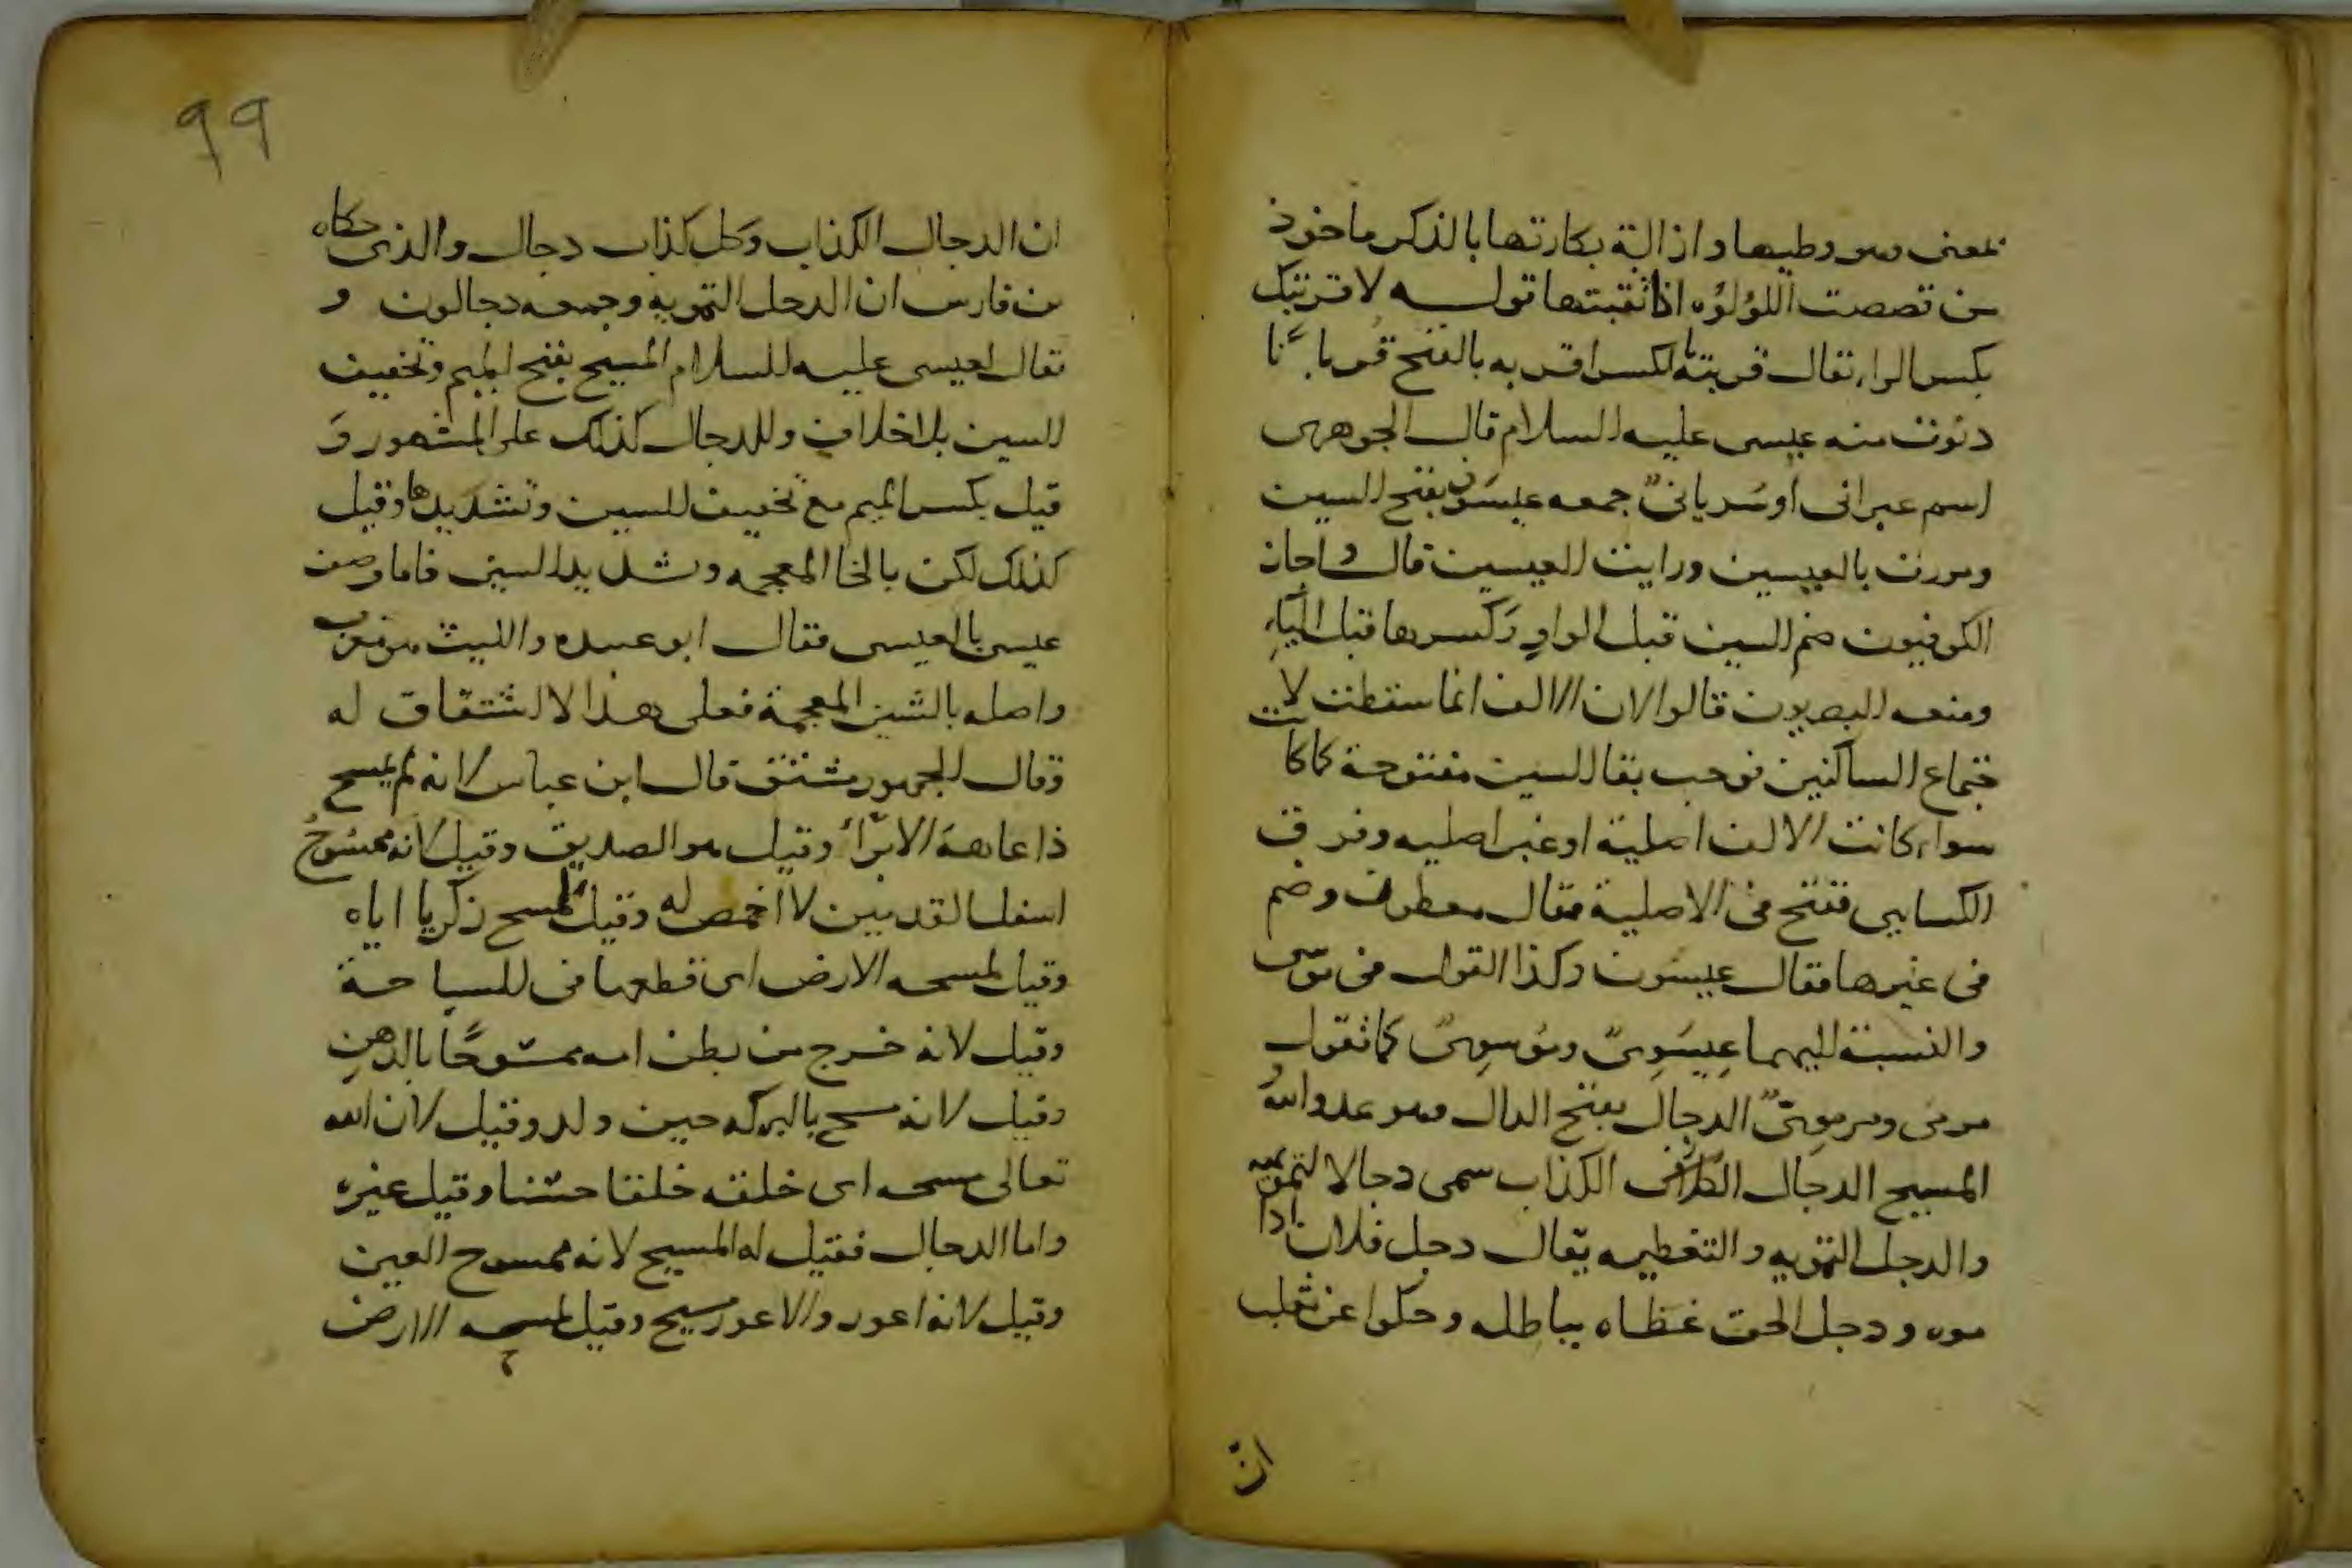 لمعنى وهو وطيها واذالة بكارتها بالذكر ماخوذ
من تصصت اللؤلؤه اذا ثقبتها قوله لاقربنك
بكسر الراء تقال قربته بالكسر اقربه بالفتح قربا نا
دنوت منه عيسى عليه السلام قال الجوهرى
اسم عبرانى او سريانىّ جمعه عيسَون بفتح السين
ومررت بالعيسين ورايت العيسين قال واجاز
الكوفيون ضم السين قبل الواو وكسرها قبل الياءِ
ومنعه البصريون قالوا لان الالف انما سقطت لا
جتماع الساكنين فوجب بقا السين مفتوحة كما كانت
سواء كانت الالف اصلية او غير اصليه وفرق
الكسايى ففتح فى الاصلية فقال معطون وضم
فى غيرها فقال عيسُون وكذا القول فى موسى
والنسبة اليهما عِيسَوِىّ وموسوىّ كما تقول
مرمى ومرموىّ الدجال بفتح الدال وهو عدو الله
المسيح الدجال الكذاب سمى دجالا لتمويهه
والدجل التمويه والتغطيه يقال دجل فلان اذا
موه ودجل الحق غطاه بباطله وحكوا عن ثعلب
انّ
99
ان الدجال الكذاب وكل كذاب دجال والذى حكاه
بن فارس ان الدجل التمويه وجمعه دجالون و
تقال لعيسى عليه السلام المسيح بفتح الميم وتخفيف
السين بلا خلاف وللدجال كذلك على المشهور وَ
قيل بكسر الميم مع تخفيف السين وتشديدها وقيل
كذلك لكن بالخا المعجمه وشديد السين فاما وصف
عيسى بالعيسى فقال ابو عبيده والليث هو معرب
واصله بالشين المعجمة فعلى هذا لا اشتقاق له
وقال الجمهور مشتق قال ابن عباس لانه لم يمسح
ذا عاهة الا برّأ وقيل هو الصديق وقيل لانه ممسُوحُ
اسفل القدمين لا اخمص له وقيل لمسح زكريا اياه
وقيل لمسحه الارض اى قطعها فى السيا حة
وقيل لانه خرج من بطن امه ممسوحًا بالدهن
وقيل لانه مسح بالبركه حين ولد وقيل لان الله
تعالى مسحه اى خلقه خلقا حسنا وقيل غيره
واما الدجال فقيل له المسيح لانه ممسوح العين
وقيل لانه اعور والاعور مسيح وقيل لمسحه الارض